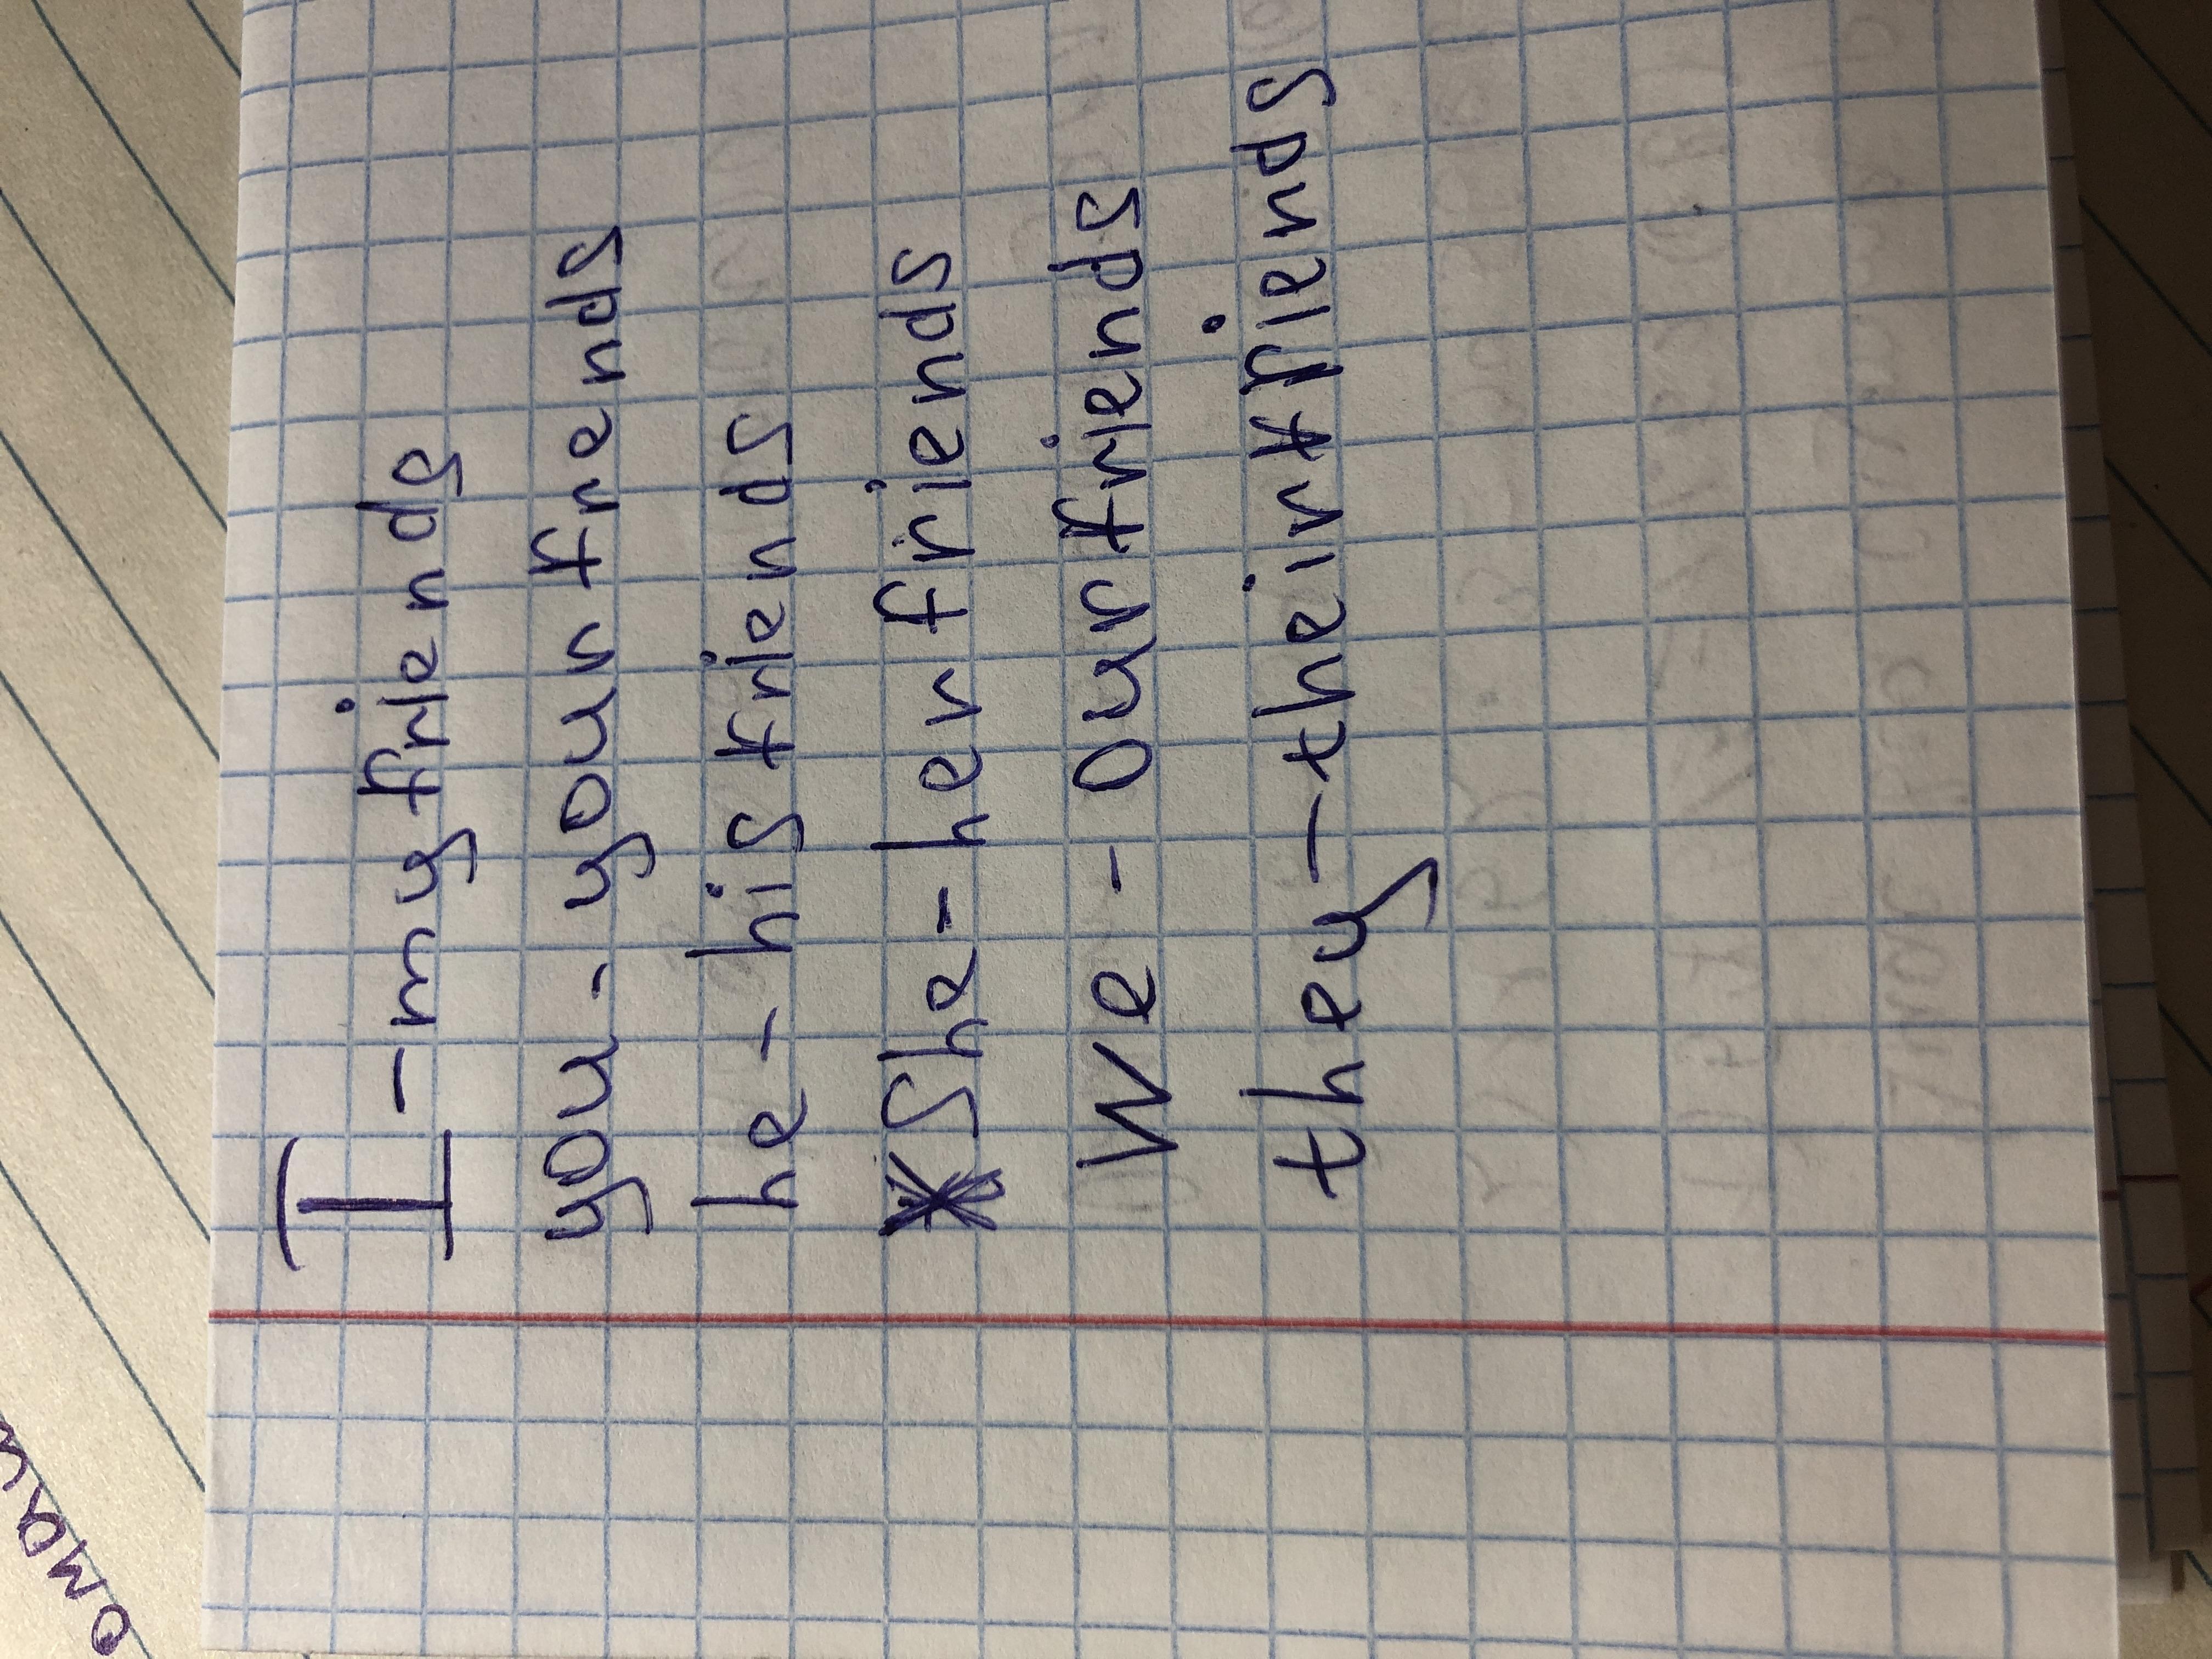 I - my friends
you - your frends
he - his friends
She - her friends
We - our friends
they - their friends